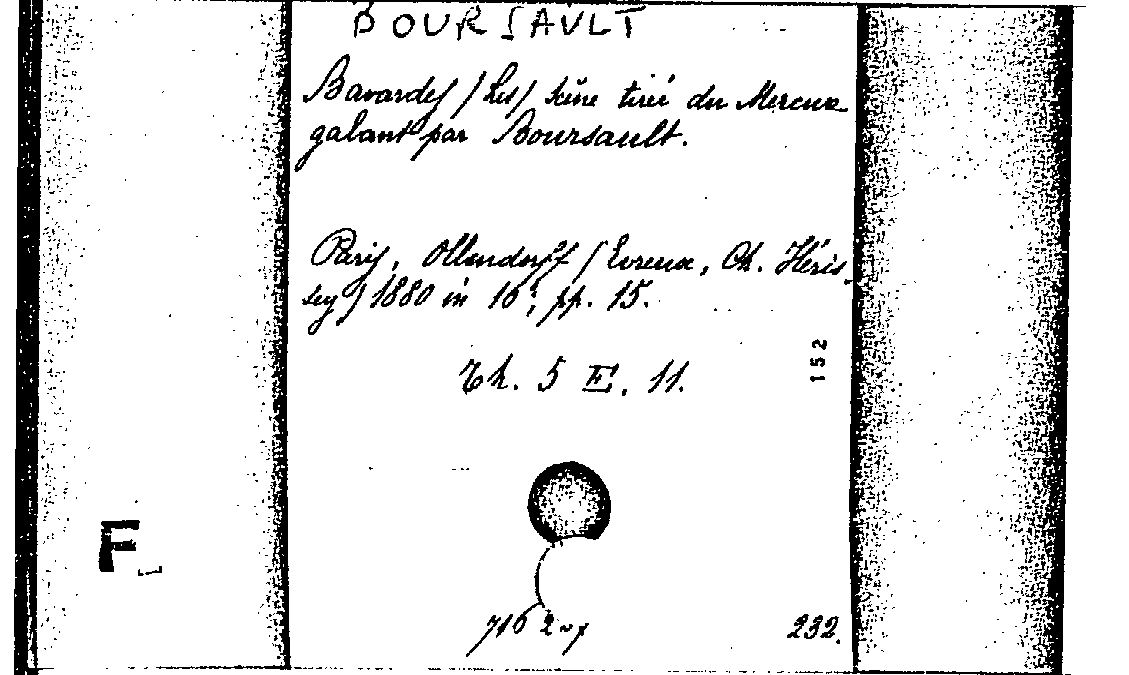 BOURSAULT
Bavardes /Les/ scène tirée du Mercure
galant par Boursault.
Paris, Ollendorff /Evreux, Ch. Héris
sey/ 1880 in 16°, pp. 15.
Th. 5 E. 11.
152
F
232.